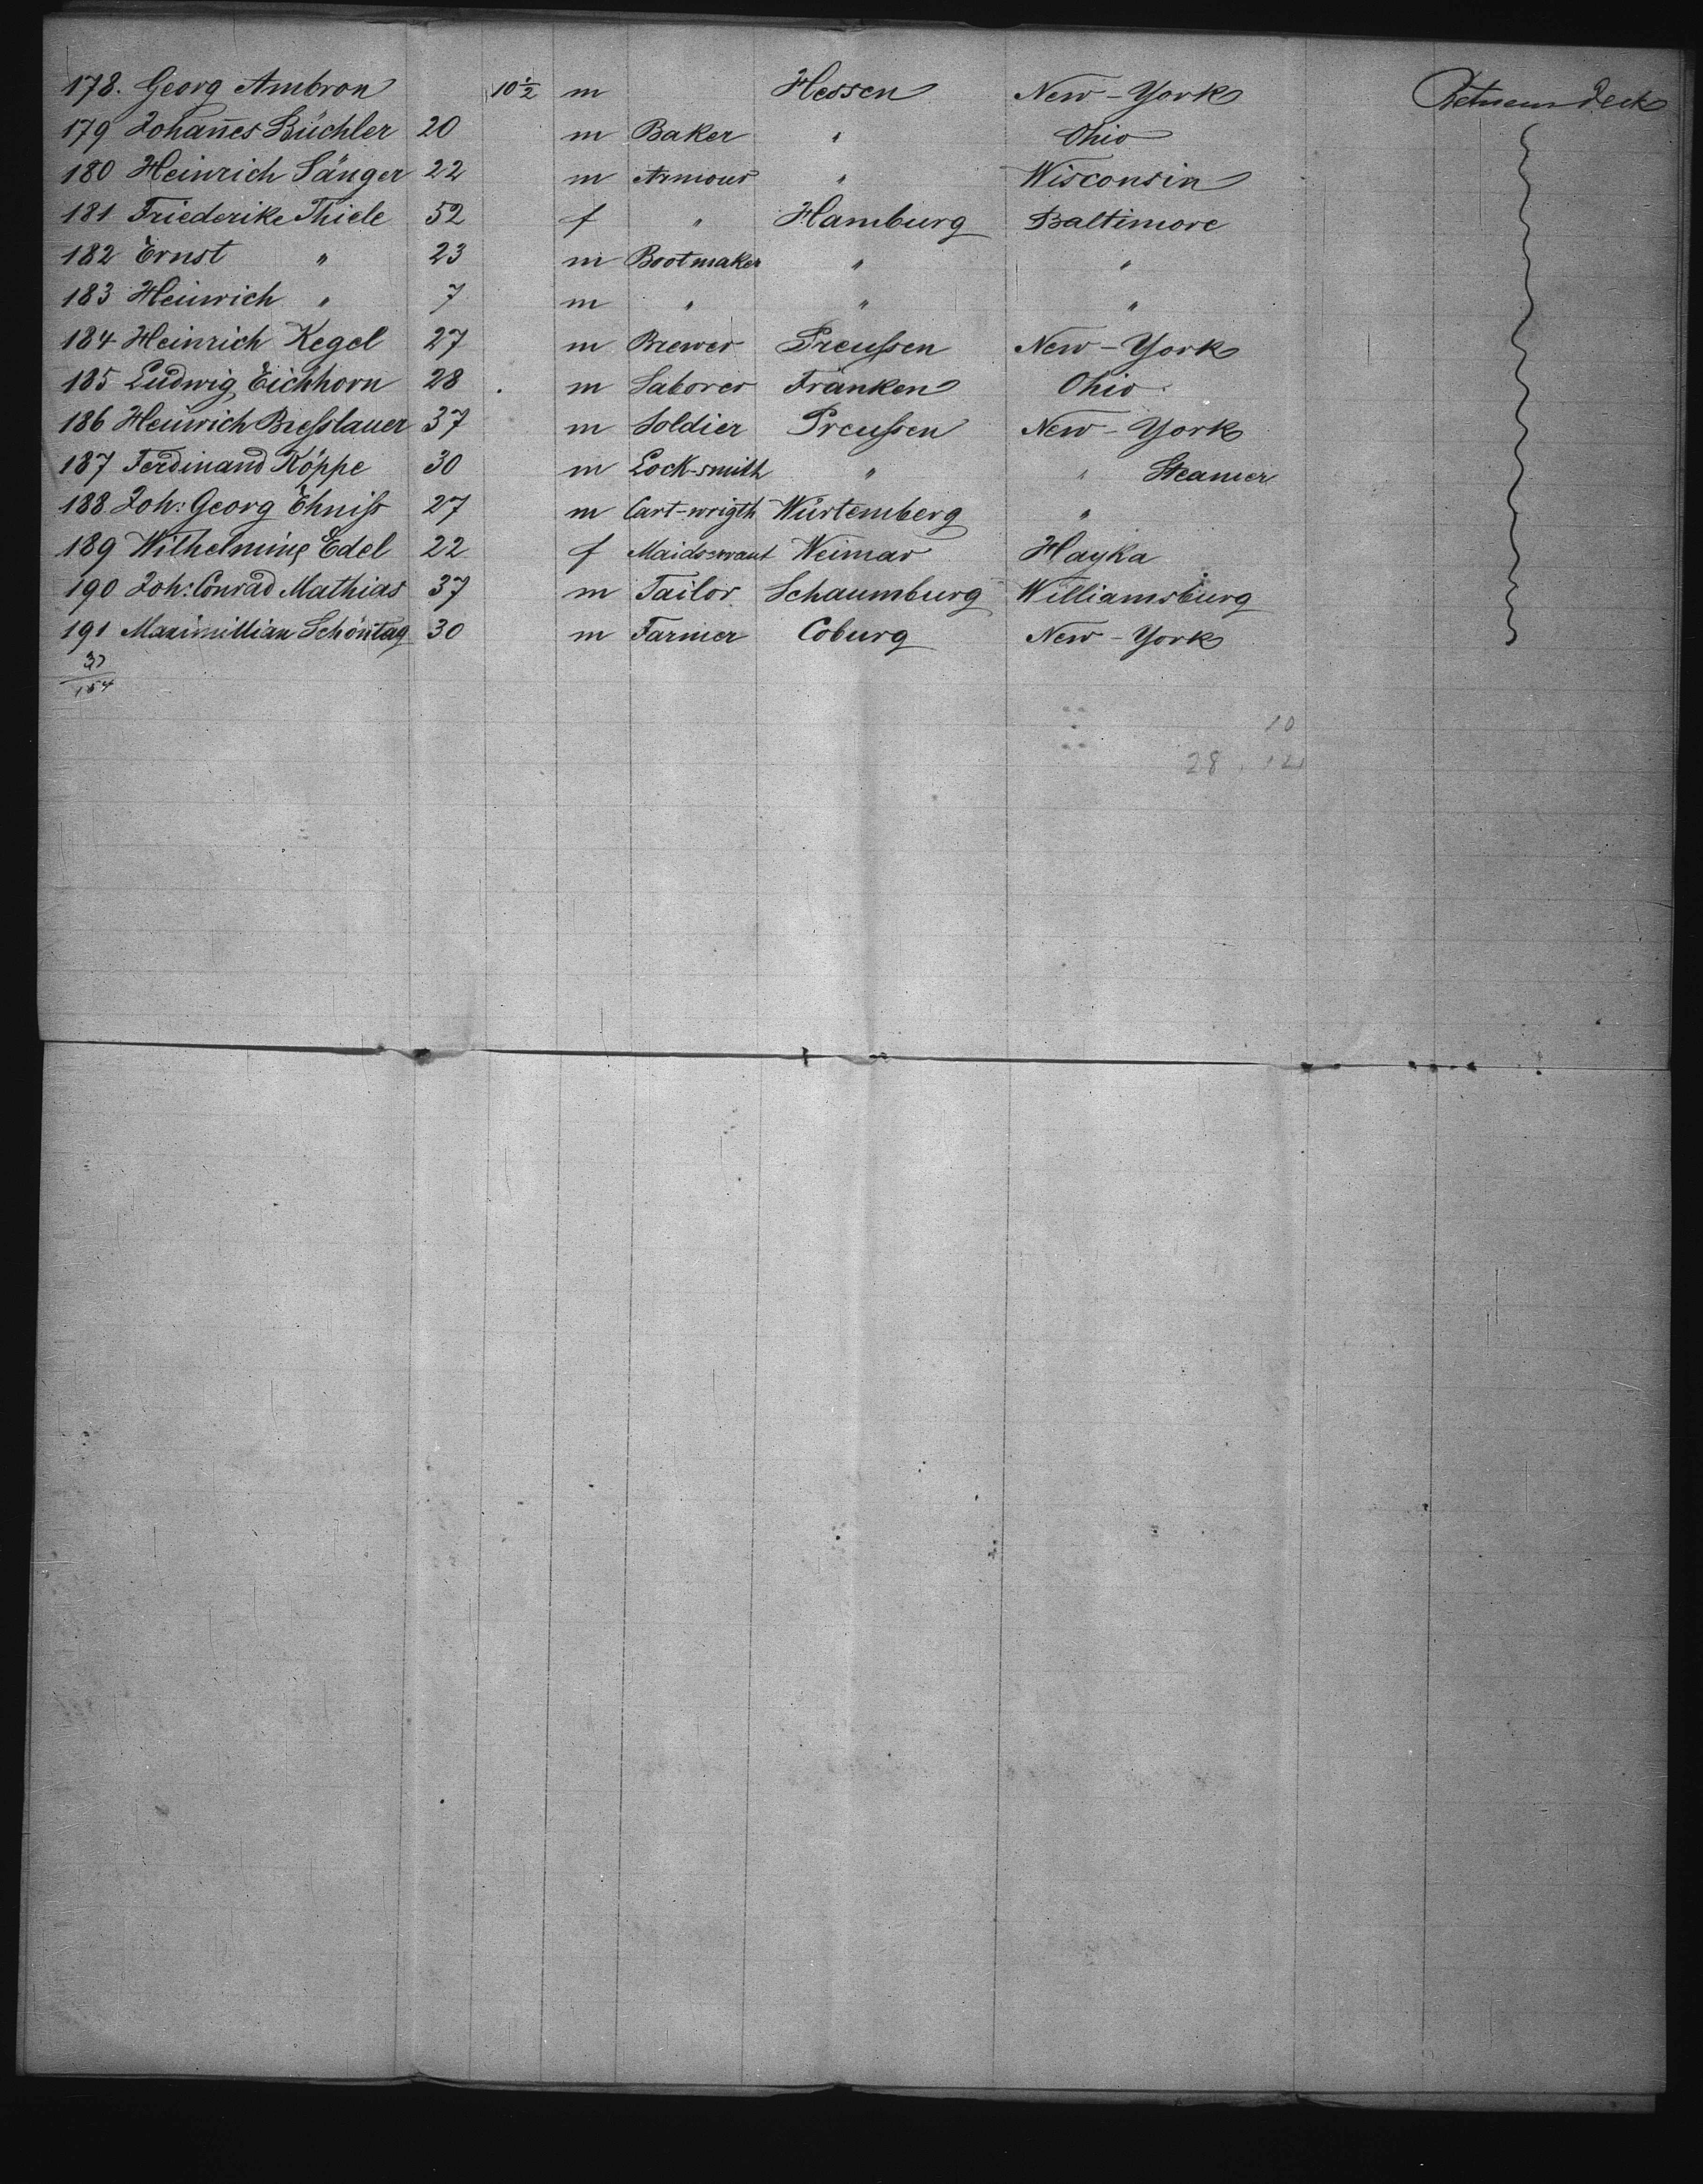 178. Georg Ambron 10½ m Hessen New-York Between deck
179 Johan̄es Büchler 20 m Baker " Ohio
180 Heinrich Sänger 22 m Armour " Wisconsin
181 Friederike Thiele 52 f " Hamburg Baltimore
182 Ernst " 23 m Bootmaker " "
183 Heinrich " 7 m " " "
184 Heinrich Kegel 27 m Brewer Preußen New-York
185 Ludwig Eichhorn 28 m Laborer Franken Ohio
186 Heinrich Breßlauer 37 m Soldier Preußen New-York
187 Ferdinand Köppe 30 m Lock-smith " " Steamer
188 Joh: Georg Ehniß 27 m Cart-wrigth Würtemberg "
189 Wilhelmine Edel 22 f Maidservant Weimar Hayka
190 Joh: Conrad Mathias 37 m Tailor Schaumburg Williamsburg
191 Maximillian Schöntag 30 m Farmer Coburg New-York
37
154
10
28 . 12